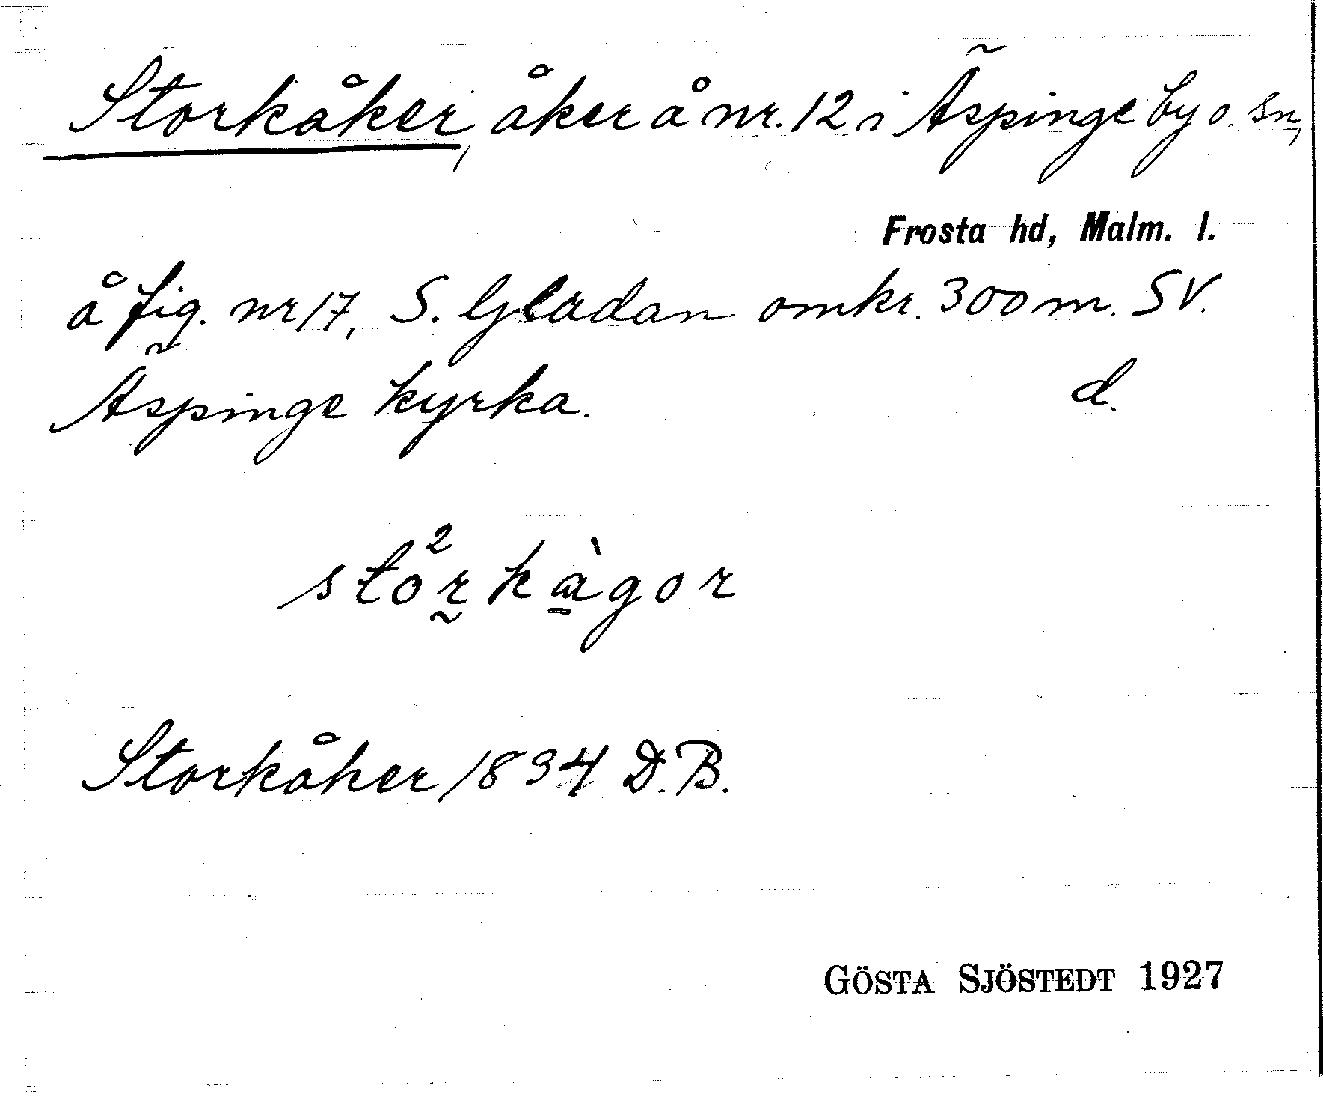 Storkåker, åker å nr. 12 i Äspinge by o. sn,
Frosta hd, Malm. l.
å fig. nr 17, S. Gladan omkr. 300 m. SV.
Äspinge kyrka. d.
Storkåker 1834 D.B.
GÖSTA SJÖSTEDT 1927